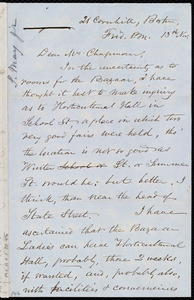 21 Cornhill, Boston,
Fred. P.M. 13th
Dear Mrs Chapman,
In the uncertainty as to
rooms for the Bazaar, I have
thought it best to make inquiry
as to Horticultural Hall in
School St a place in which two
very good fairs were held, tho'
the location is not so good as
Winter St. or Summer
St. would be; but better, I
think, than near the head of
State Street. I have
ascertained that the Bazaar
Ladies can have Horticultural
Hall, probably, those 2 weeks,
if wanted, and, probably, also,
with facilities & conveniences